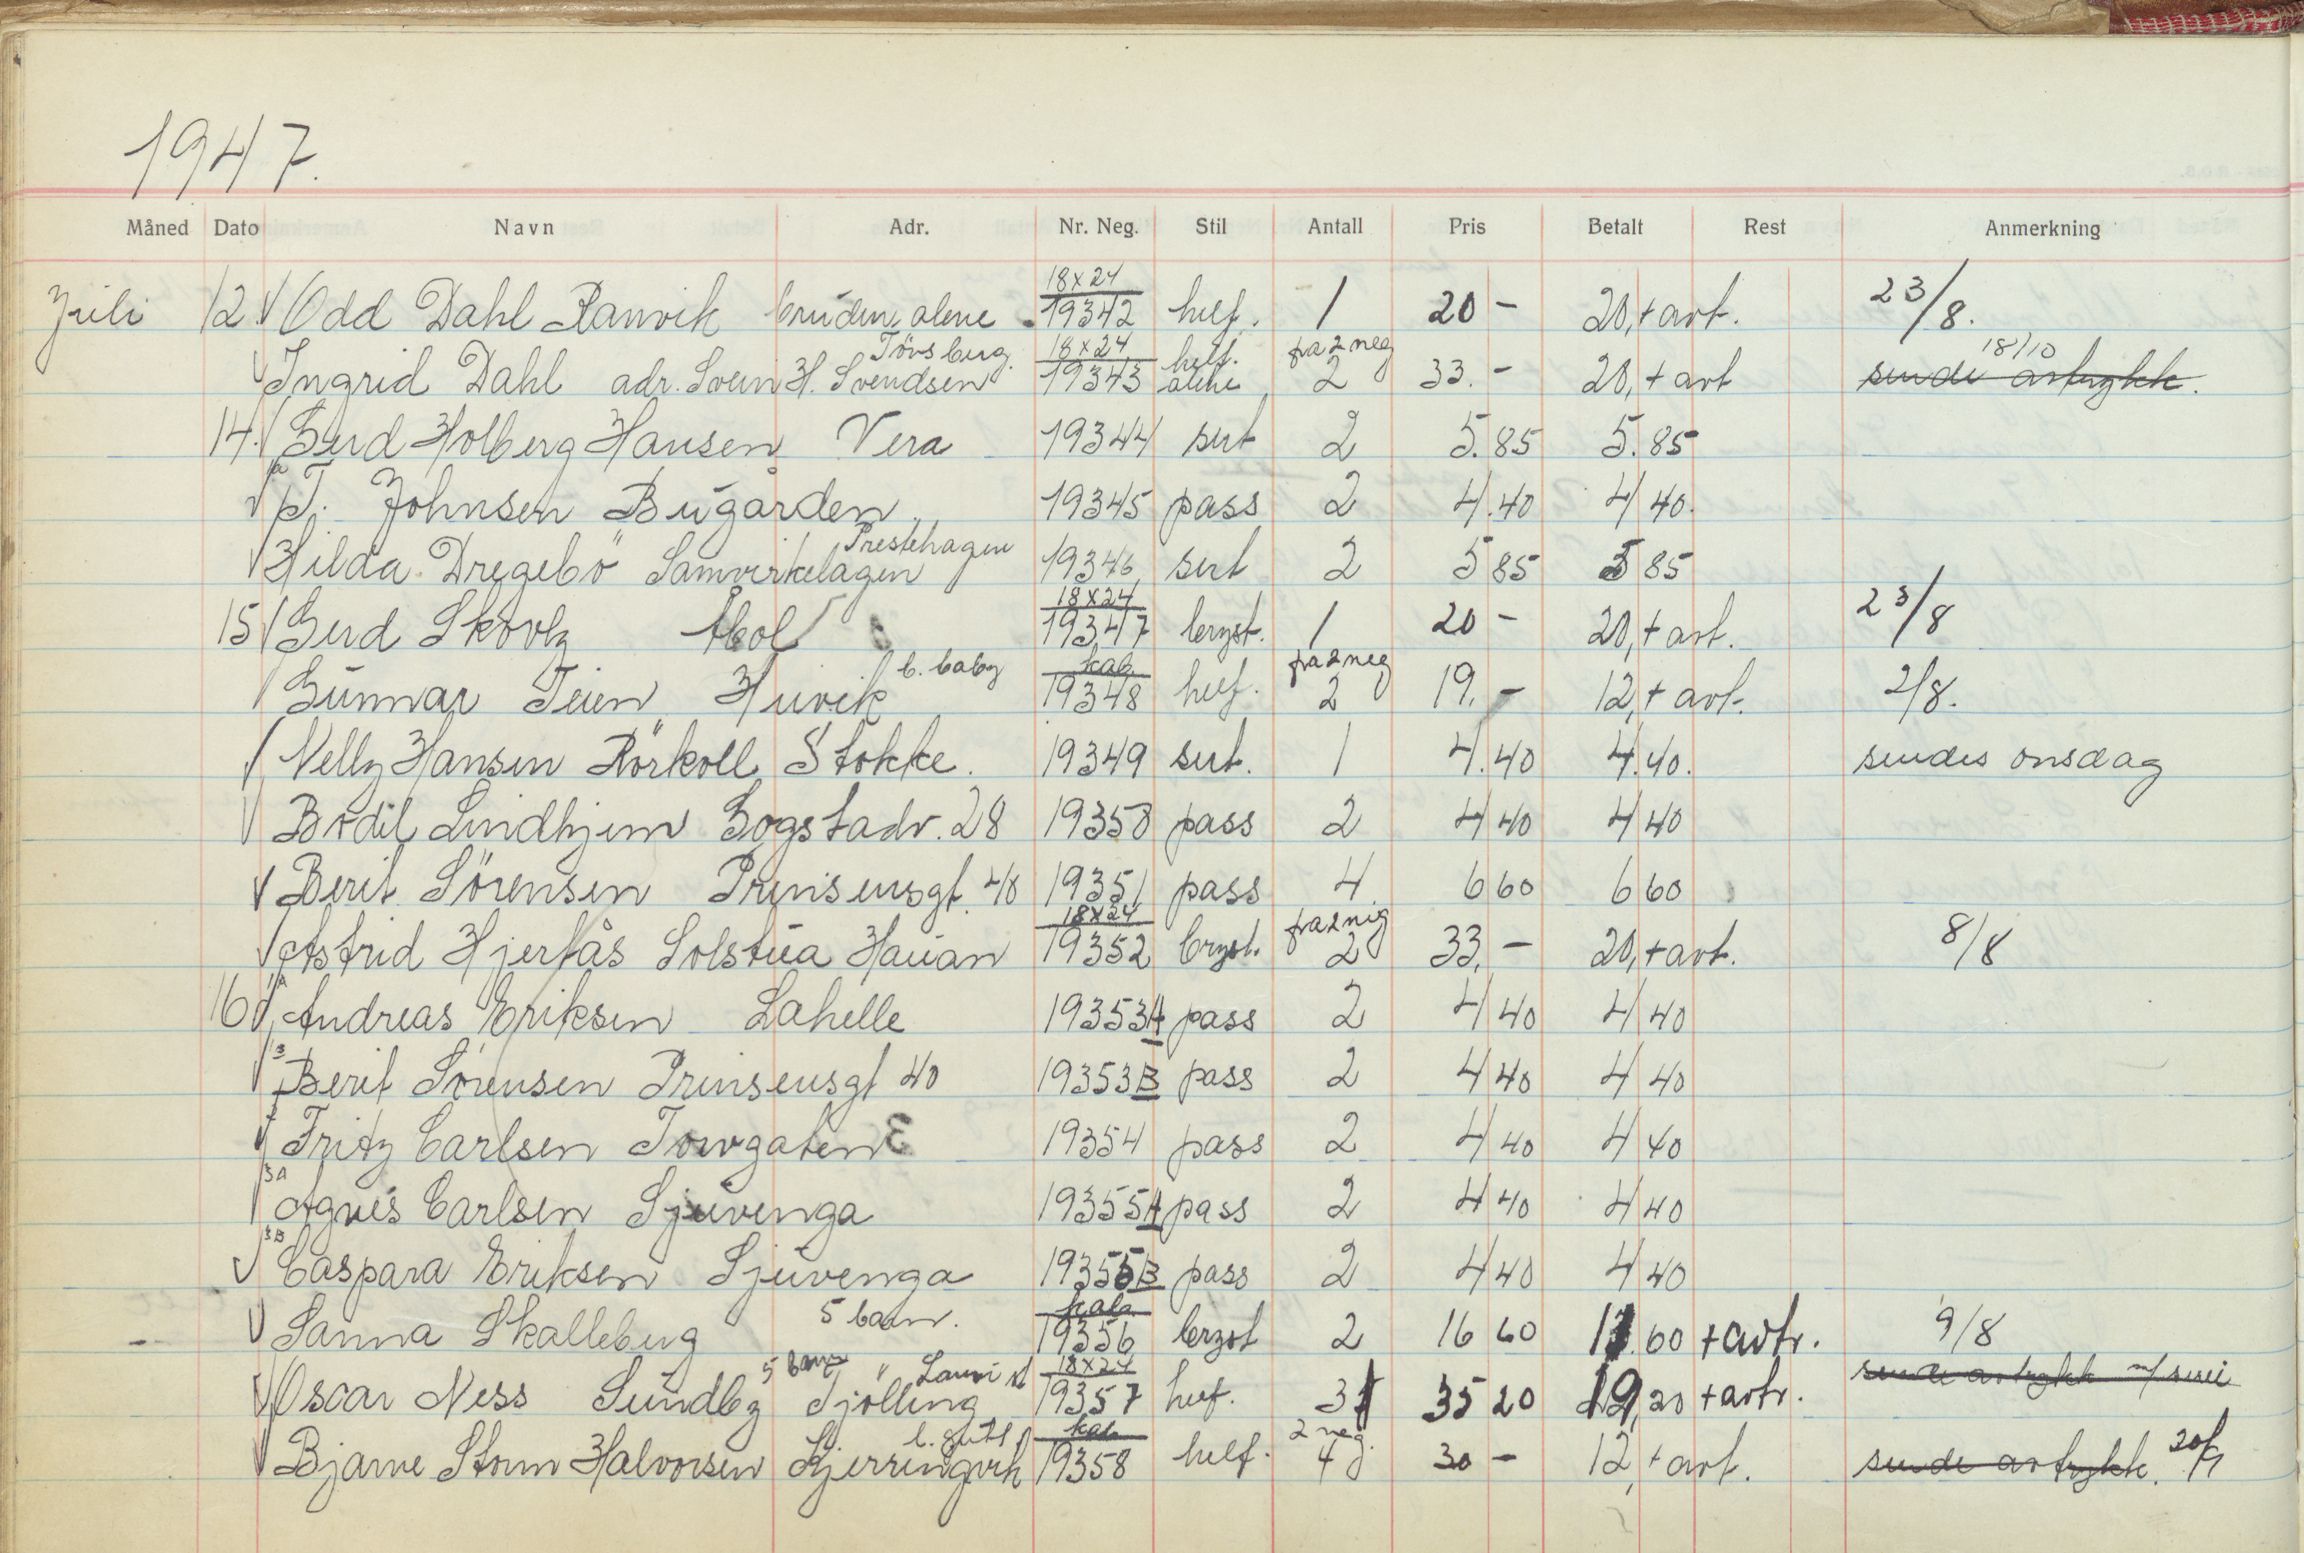 1947.
Måned Dato Navn Adr. Nr. Neg. Stil Antall Pris Betalt Rest Anmerkning
18x24
Juli 12. Odd Dahl Ranvik bruden alene 19342 helf. 1 20 - 20,+ avt. 23/8.
Tønsberg. 18x24 helf. fra 2 neg 18/10
Ingrid Dahl adr. Svein H. Svendsen 19343 alene 2 33. - 20,+ avt sende avtrykk.
14. Gerd Holberg Hansen Vera 19344 sert 2 5.85 5.85
T. Johnsen Bugården 19345 pass 2 4.40 4 40.
Prestehagen
Hilda Dregebö Samvirkelagen 19346 sert 2 5 85 5 85
18x24
15 Gerd Skovly 19347 bryst. 1 20 - 20,+ avt. 23/8
b. baby kab. fra 2 neg
Gunnar Teien Huvik 19348 helf. 2 19. - 12,+ avt. 2/8.
Nelly Hansen Rörkoll Stokke. 19349 sert. 1 4.40 4.40. sendes onsdag
Bodil Lindhjem Bogstadv. 28 19350 pass 2 4 40 4 40
Berit Sörensen Prinsensgt. 40 19351 pass 4 6 60 6 60
18x24 fra 2 neg
Astrid Hjertås Solstua Hauan 19352 bryst. 2 33, - 20,+ avt. 8/8
16 Andreas Eriksen Lahelle 19353A pass 2 4 40 4 40
B
Berit Sörensen Prinsensgt 40 19353B pass 2 4 40 4 40
Fritz Carlsen Torvgaten 19354 pass 2 4 40 4 40
3A
Agnes Carlsen Sjuvenga 19355A pass 2 4 40 4 40
3B
Caspara Eriksen Sjuvenga 19355B pass 2 4 40 4 40
5 barn. kab.
Sanna Skalleberg 19356 bryst 2 16 60 60 + avtr. 9/8
5 barn 18x24
Oscar Ness Sundby Tjølling 19357 helf. 3 35 20 19,20 + avtr. sende avtrykk
kab. 2 neg.
Bjarne Storm Halvorsen Kjerringvik 19358 helf. 4 30 - 12, + avt. sende avtrykk.